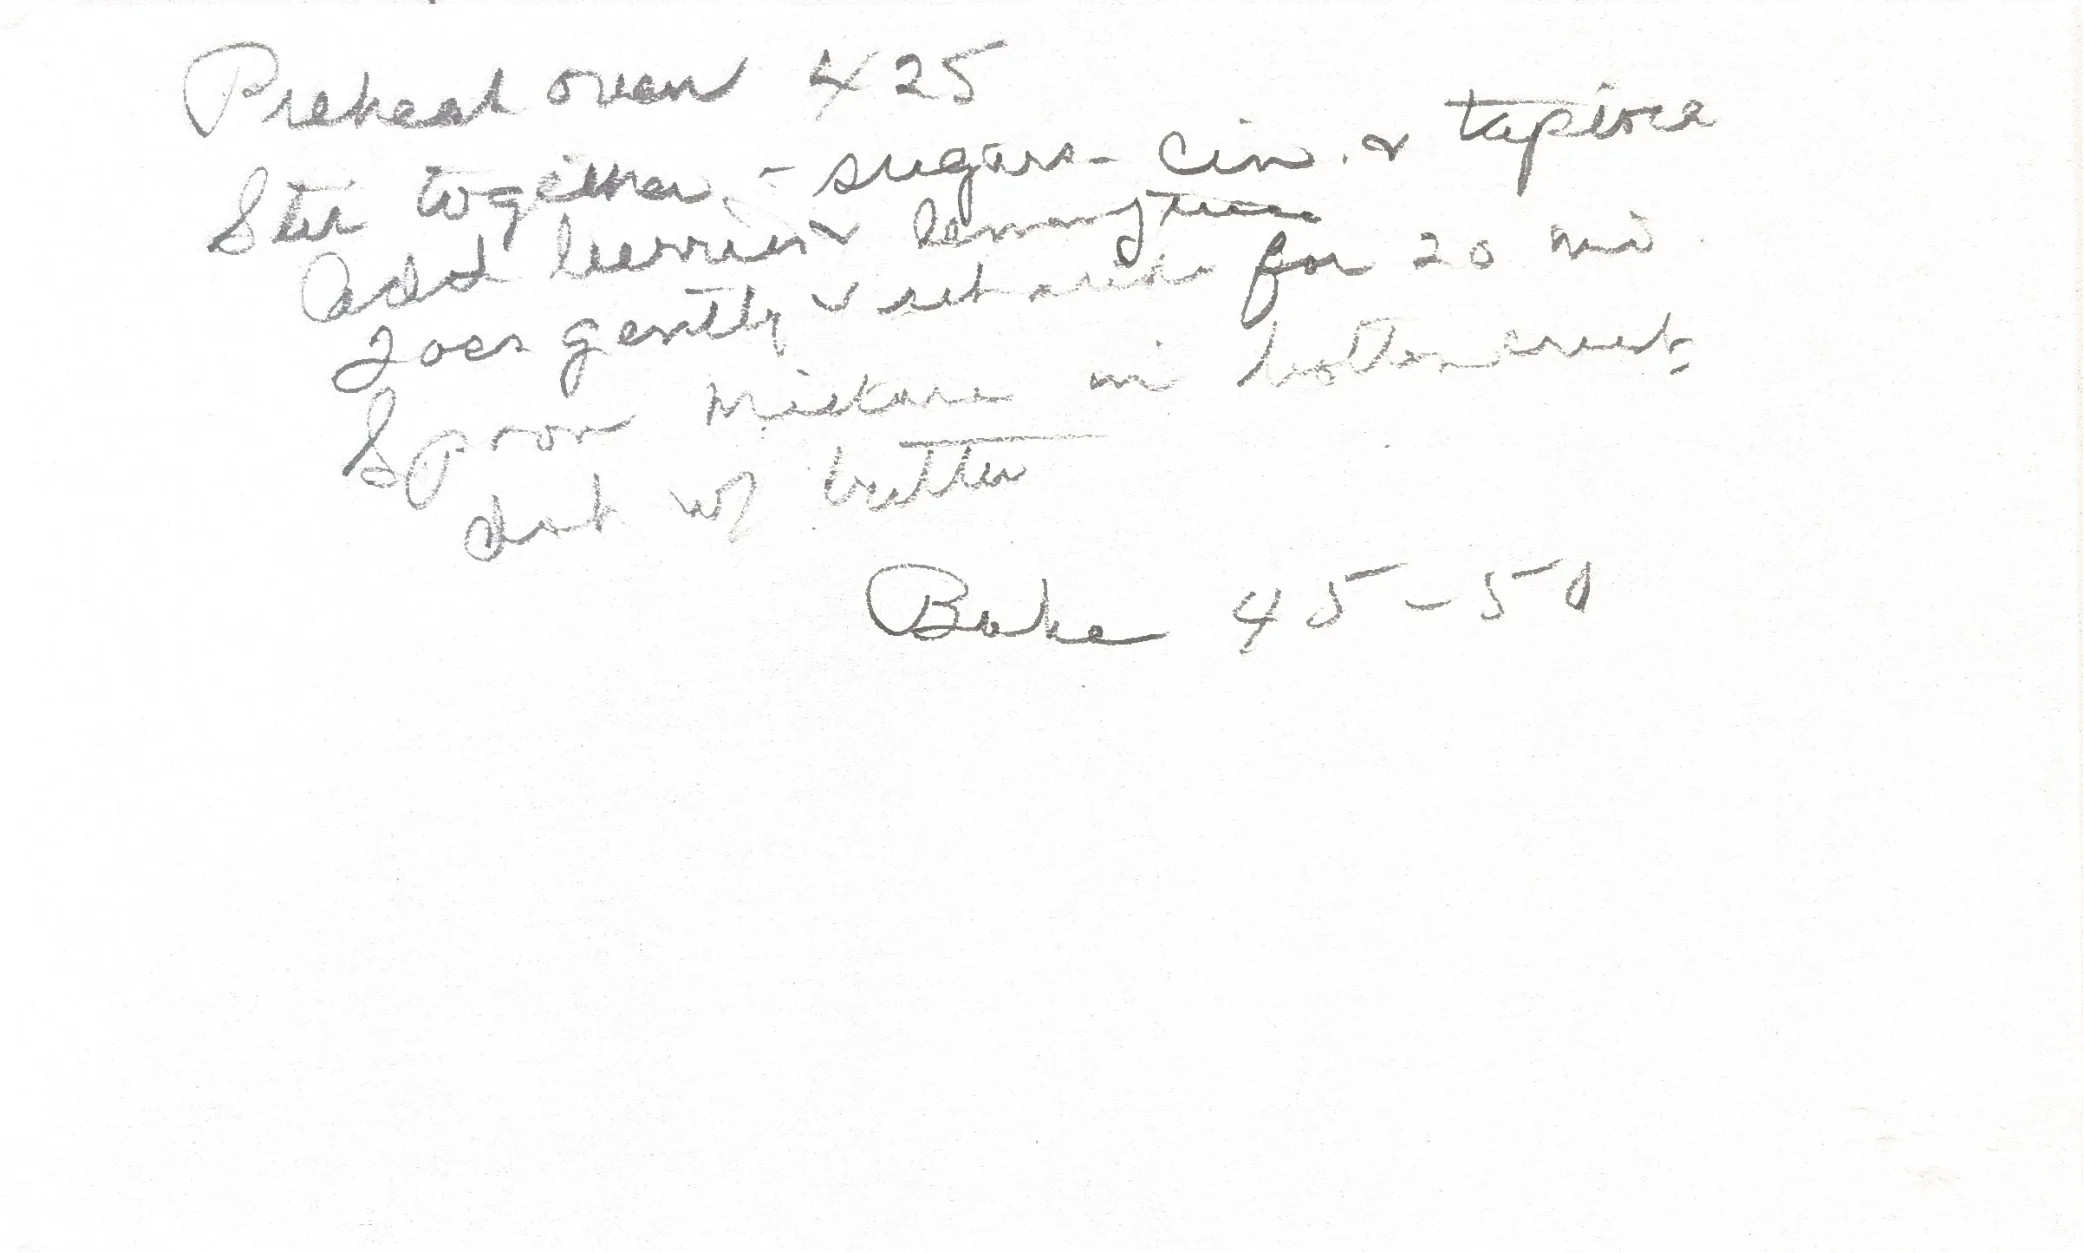 Preheat oven 425
Stir together - sugars - cin. & tapioca
Add berries & lemon juice
Toss gently & set aside for 20 min
Spoon mixture in bottom crust
dot w/ butter
Bake 45-50